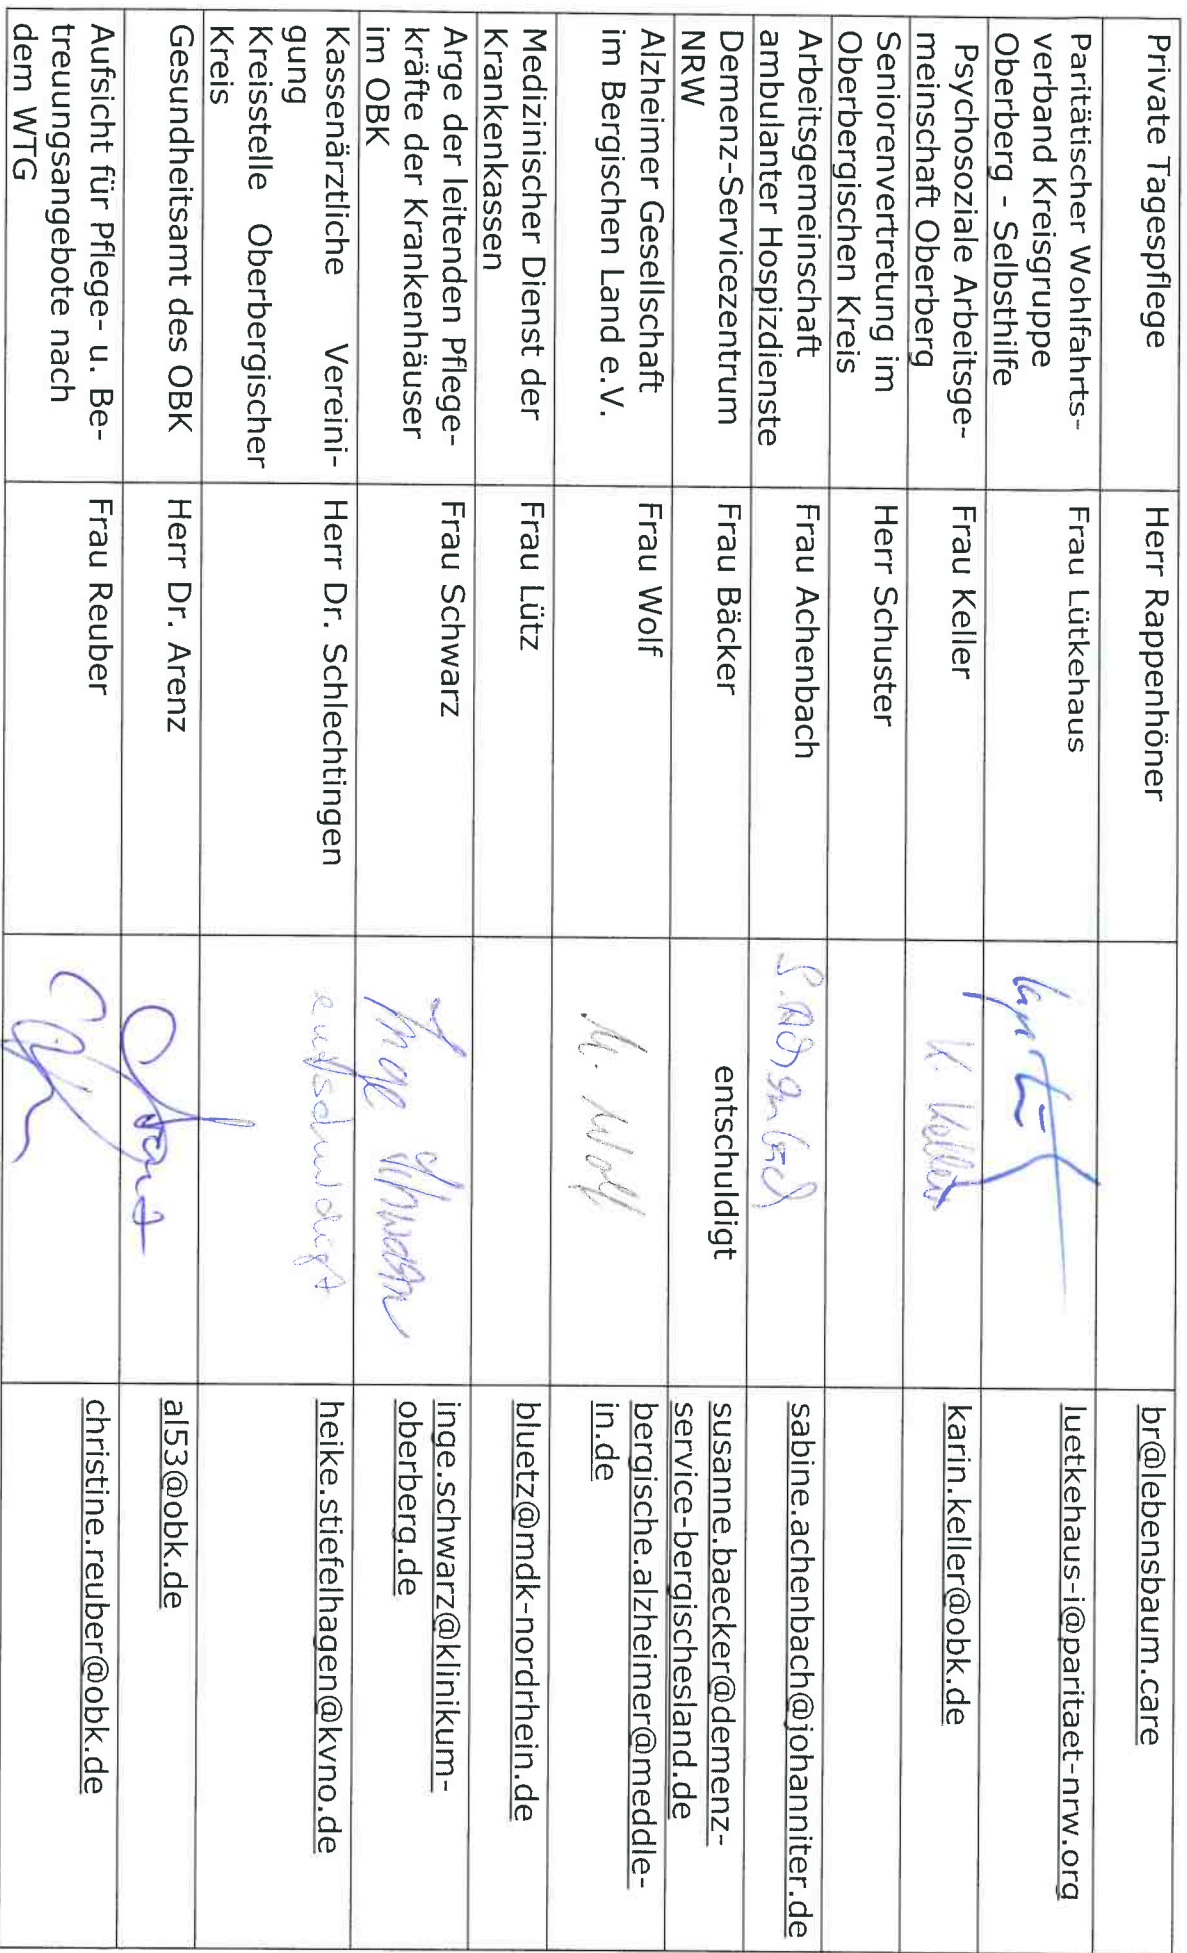 Private Tagespflege
Herr Rappenhöner
br@lebensbaum.care
Paritätischer Wohlfahrts-
verband Kreisgruppe
Oberberg - Selbsthilfe
Frau Lütkehaus
luetkehaus-i@paritaet-nrw.org
Psychosoziale Arbeitsge-
meinschaft Oberberg
Frau Keller
K. Keller
karin.keller@obk.de
Seniorenvertretung im
Oberbergischen Kreis
Herr Schuster
Arbeitsgemeinschaft
ambulanter Hospizdienste
Frau Achenbach
S. Achenbach
sabine.achenbach@johanniter.de
Demenz-Servicezentrum
NRW
Frau Bäcker
entschuldigt
susanne.baecker@demenz-
service-bergischesland.de
Alzheimer Gesellschaft
im Bergischen Land e.V.
Frau Wolf
M. Wolf
bergische.alzheimer@meddle-
in.de
Medizinischer Dienst der
Krankenkassen
Frau Lütz
bluetz@mdk-nordrhein.de
Arge der leitenden Pflege-
kräfte der Krankenhäuser
im OBK
Frau Schwarz
Inge Schwarz
inge.schwarz@klinikum-
oberberg.de
Kassenärztliche Vereini-
gung
Kreisstelle Oberbergischer
Kreis
Herr Dr. Schlechtingen
entschuldigt
heike.stiefelhagen@kvno.de
Gesundheitsamt des OBK
Herr Dr. Arenz
al53@obk.de
Aufsicht für Pflege- u. Be-
treuungsangebote nach
dem WTG
Frau Reuber
christine.reuber@obk.de